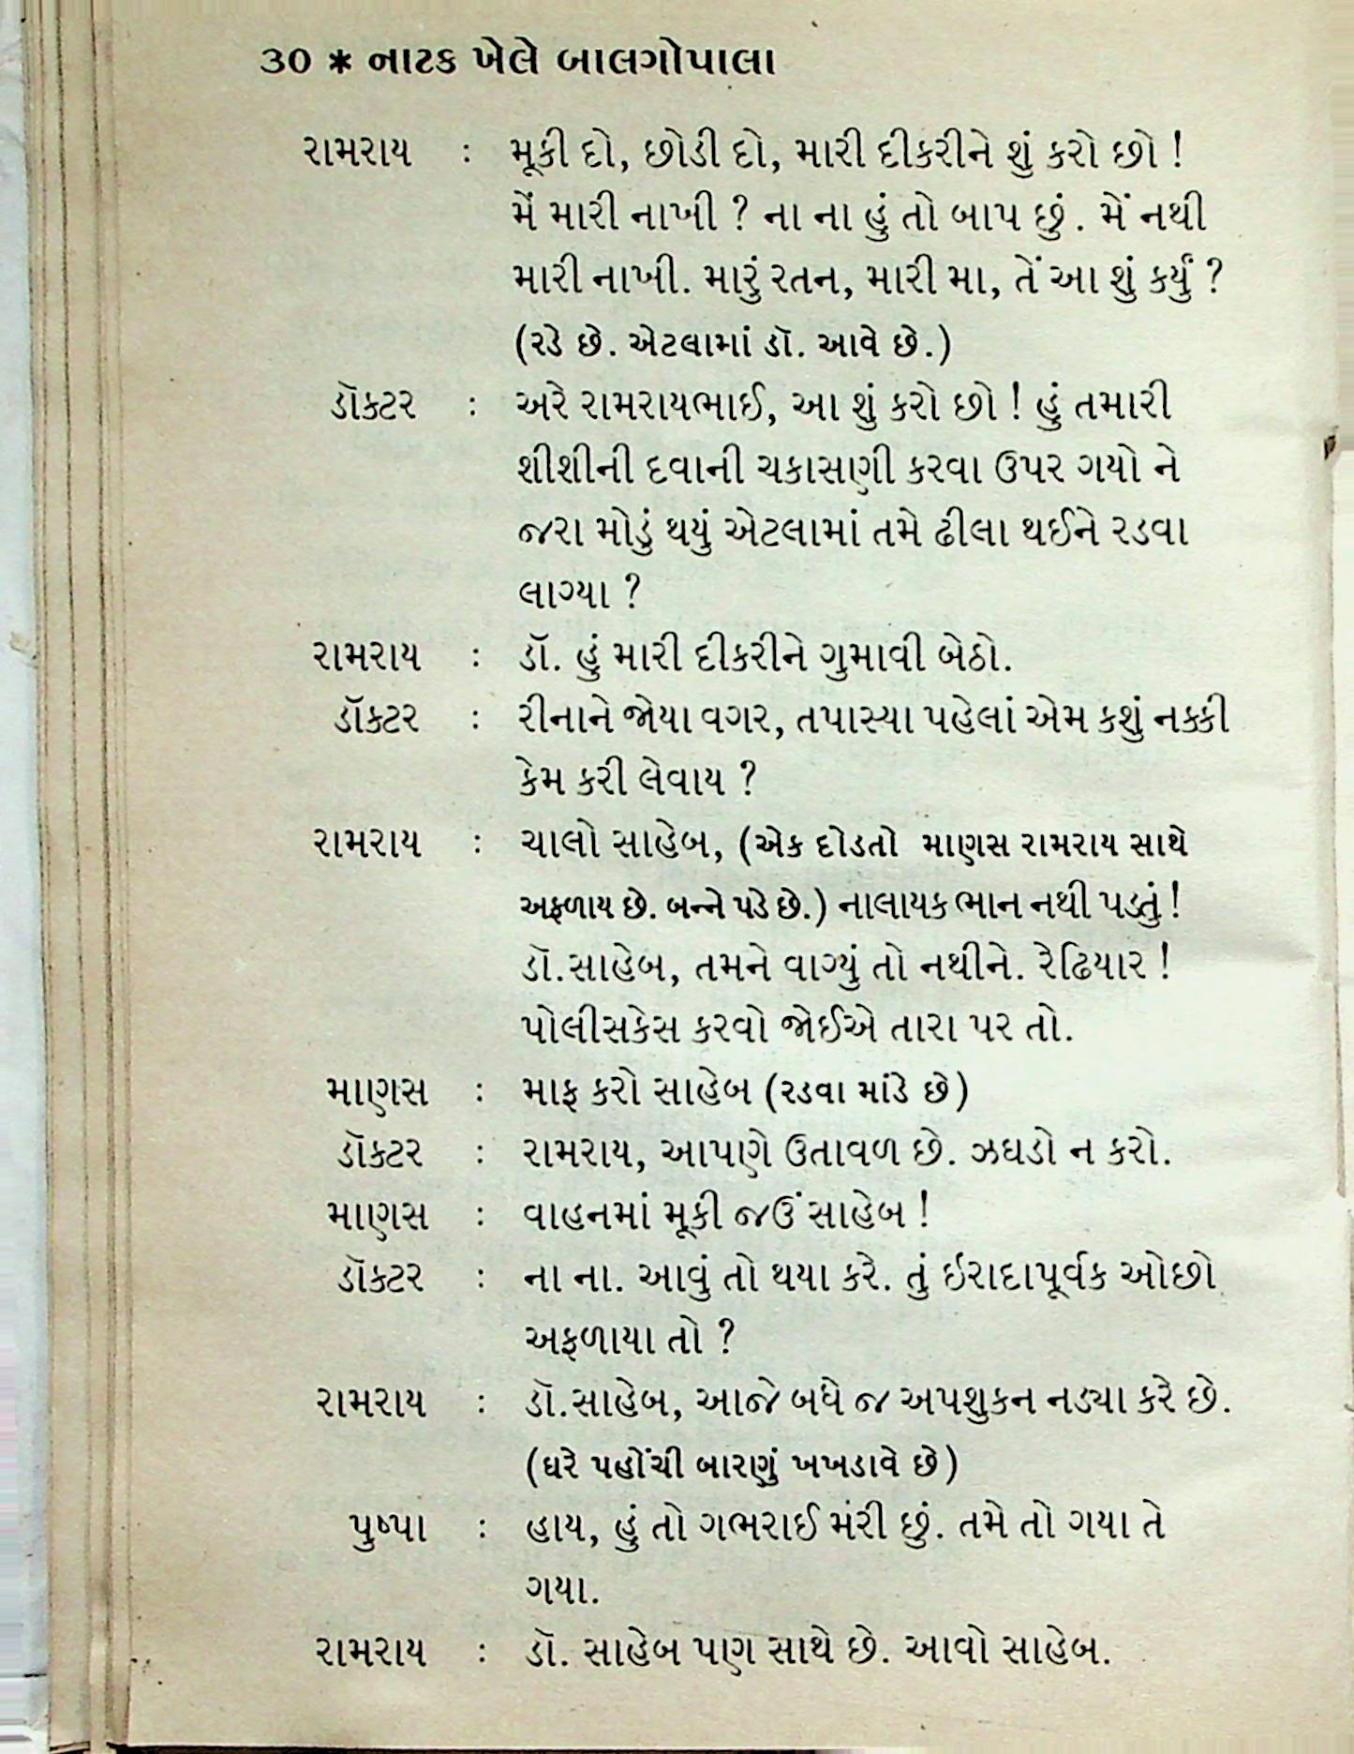 30 * નાટક ખેલે બાલગોપાલા
રામરાય : મૂકી દો, છોડી દો, મારી દીકરીને શું કરો છો !
મેં મારી નાખી ? ના ના હું તો બાપ છું. મેં નથી
મારી નાખી. મારું રતન, મારી મા, તેં આ શું કર્યું ?
(રડે છે. એટલામાં ડૉ. આવે છે.)
ડૉક્ટર : અરે રામરાયભાઈ, આ શું કરો છો ! હું તમારી
શીશીની દવાની ચકાસણી કરવા ઉપર ગયો ને
જરા મોડું થયું એટલામાં તમે ઢીલા થઈને રડવા
લાગ્યા ?
રામરાય : ડૉ. હું મારી દીકરીને ગુમાવી બેઠો.
ડૉક્ટર : રીનાને જોયા વગર, તપાસ્યા પહેલાં એમ કશું નક્કી
કેમ કરી લેવાય ?
રામરાય : ચાલો સાહેબ, (એક દોડતો માણસ રામરાય સાથે
અફળાય છે. બન્ને પડે છે.) નાલાયક ભાન નથી પડતું !
ડૉ.સાહેબ, તમને વાગ્યું તો નથીને. રેઢિયાર !
પોલીસકેસ કરવો જોઈએ તારા પર તો.
માણસ : માફ કરો સાહેબ (રડવા માંડે છે)
ડૉક્ટર : રામરાય, આપણે ઉતાવળ છે. ઝઘડો ન કરો.
માણસ : વાહનમાં મૂકી જઉં સાહેબ !
ડૉક્ટર : ના ના. આવું તો થયા કરે. તું ઇરાદાપૂર્વક ઓછો
અફળાયા તો ?
રામરાય : ડૉ.સાહેબ, આજે બધે જ અપશુકન નડ્યા કરે છે.
(ઘરે પહોંચી બારણું ખખડાવે છે)
પુષ્પા : હાય, હું તો ગભરાઈ મરી છું. તમે તો ગયા તે
ગયા.
રામરાય : ડૉ. સાહેબ પણ સાથે છે. આવો સાહેબ.